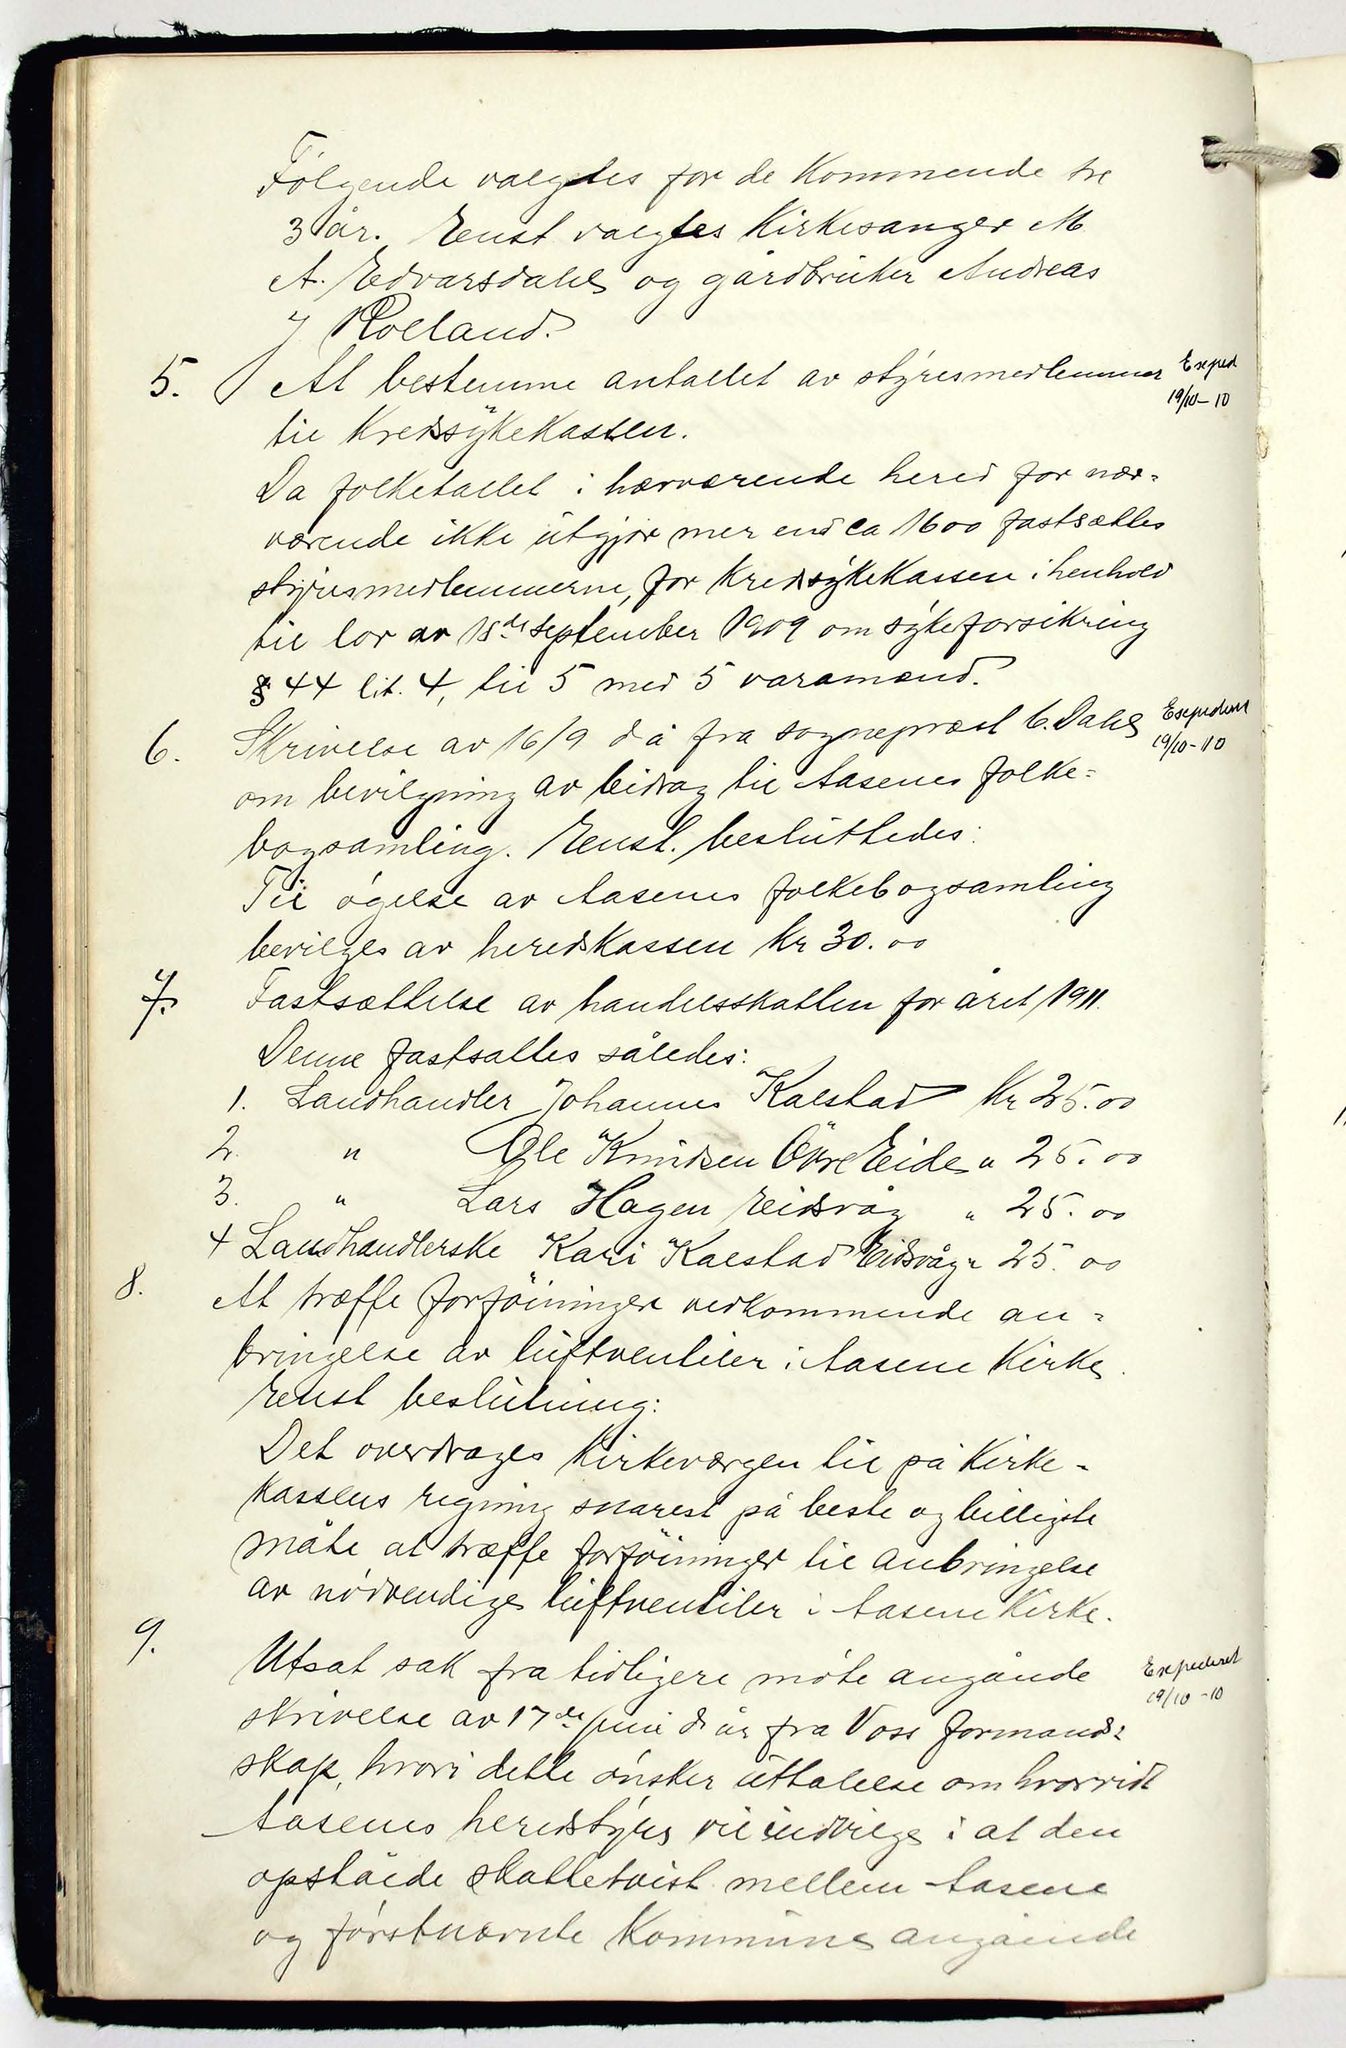 Følgende valgtes for de kommende tre
3 år. Enst valgtes Kirkesanger M
A. Edvarsdahl og gårdbruker Andreas
J Rolland.
5. At bestemme antallet av styresmedlemmer Exped
til Kredssykekassen. 19/10-10
Da folketallet i hærværende hered for nær-
værende ikke utgjør mer end ca 1600 fastsættes
styresmedlemmerne, for Kredssykekassen i henhold
til lov av 18de september 1909 om sykeforsikring
§ 44 lit. 4, til 5 med 5 varamænd.
6. Skrivelse av 16/9 d å fra sogneprest C. Dahl Expedert
om bevilgning av bidrag til Aasenes folke- 19/10-10
bogsamling. Enst. besluttedes:
Til øgelse av Aasenes folkebogsamling
bevilges av heredskassen Kr 30.00
7. Fastsættelse av handelsskatten for året 1911.
Denne fastsattes således:
1. Landhandler Johannes Kalstad Kr 25.00
2. " Ole Knudsen Øvre Eide " 25.00
3. " Lars Hagen Eidsvåg " 25.00
4 Landhandlerske Kari Kalstad Eidsvåg " 25.00
8. At træffe forføininger vedkommende an-
bringelse av luftventiler i Aasene Kirke.
Enst beslutning:
Det overdrages Kirkeværgen til på Kirke-
kassens regning snarest på beste og billigste
måte at træffe forføininger til anbringelse
av nødvendige luftventiler i Aasene Kirke.
9. Utsat sak fra tidligere møte angående Expederet
skrivelse av 17de juni d år fra Voss formand- 19/10-10
skap, hvori dette ønsker uttalelse om hvorvidt
Aasenes heredstyre vil indvilge i at den
opståede skattetvist mellem Aasene
og førstnævnte Kommune angående